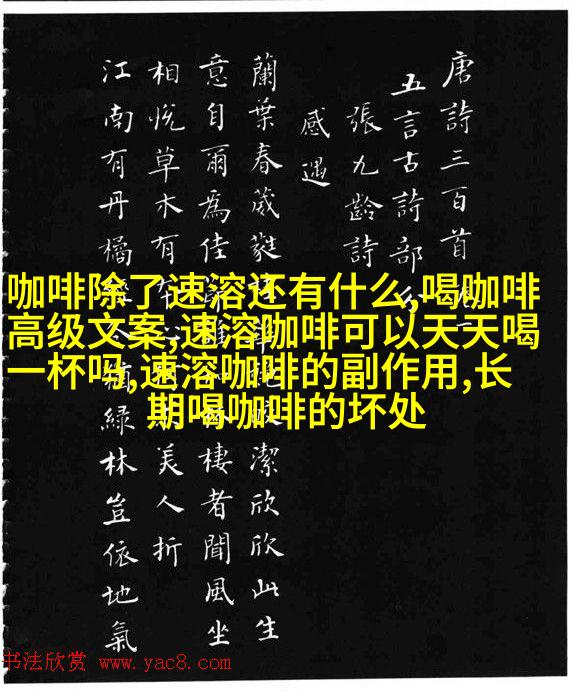 唐詩三百首
五言古詩部
張九齡詩
感遇
蘭葉春葳蕤潔欣欣此生
意自爾為佳棲者聞風坐
相悅草木有美人折
江南有丹橘綠林豈依地氣
咖啡除了速溶还有什么,喝咖啡
高级文案,速溶咖啡可以天天喝
一杯吗,速溶咖啡的副作用,长
期喝咖啡的坏处
书法欣赏 www.yac8.com